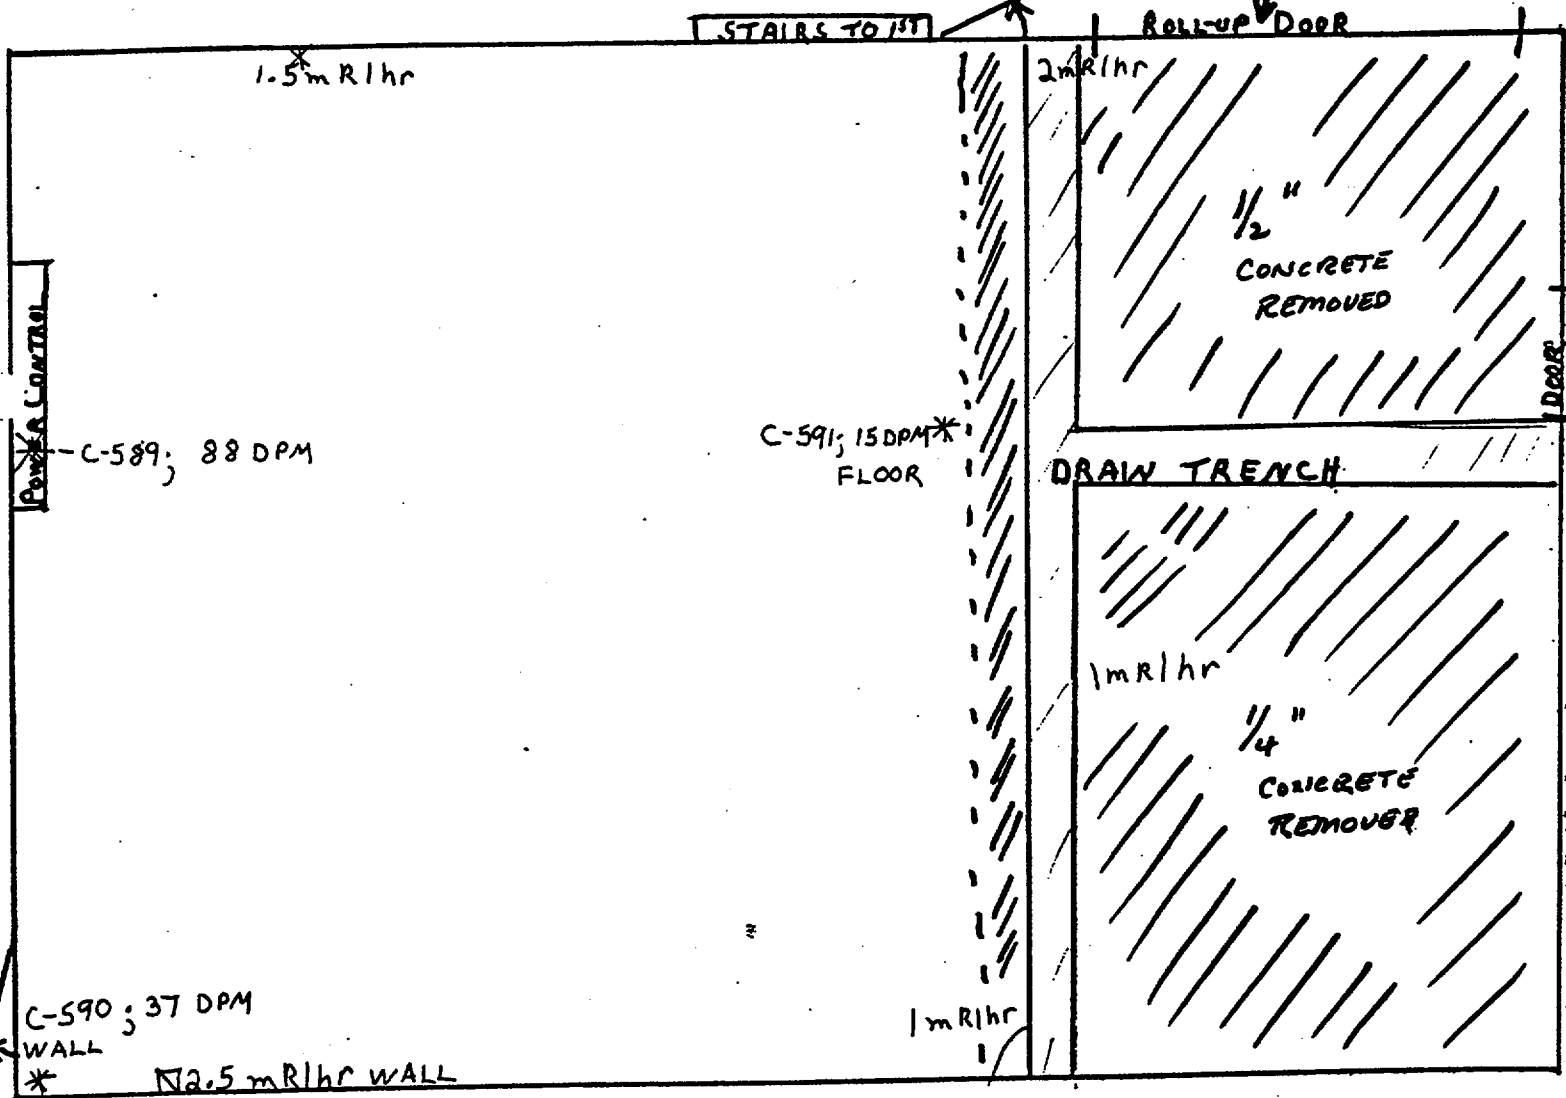 STAIRS TO 1ST
ROLL-UP DOOR
1.5mR/hr
2mR/hr
1/2"
CONCRETE
REMOVED
POWER CONTROL
DOOR
C-589; 88 DPM
C-591; 15 DPM
FLOOR
DRAIN TRENCH
1mR/hr
1/4"
CONCRETE
REMOVED
C-590; 37 DPM
WALL
1mR/hr
2.5 mR/hr WALL